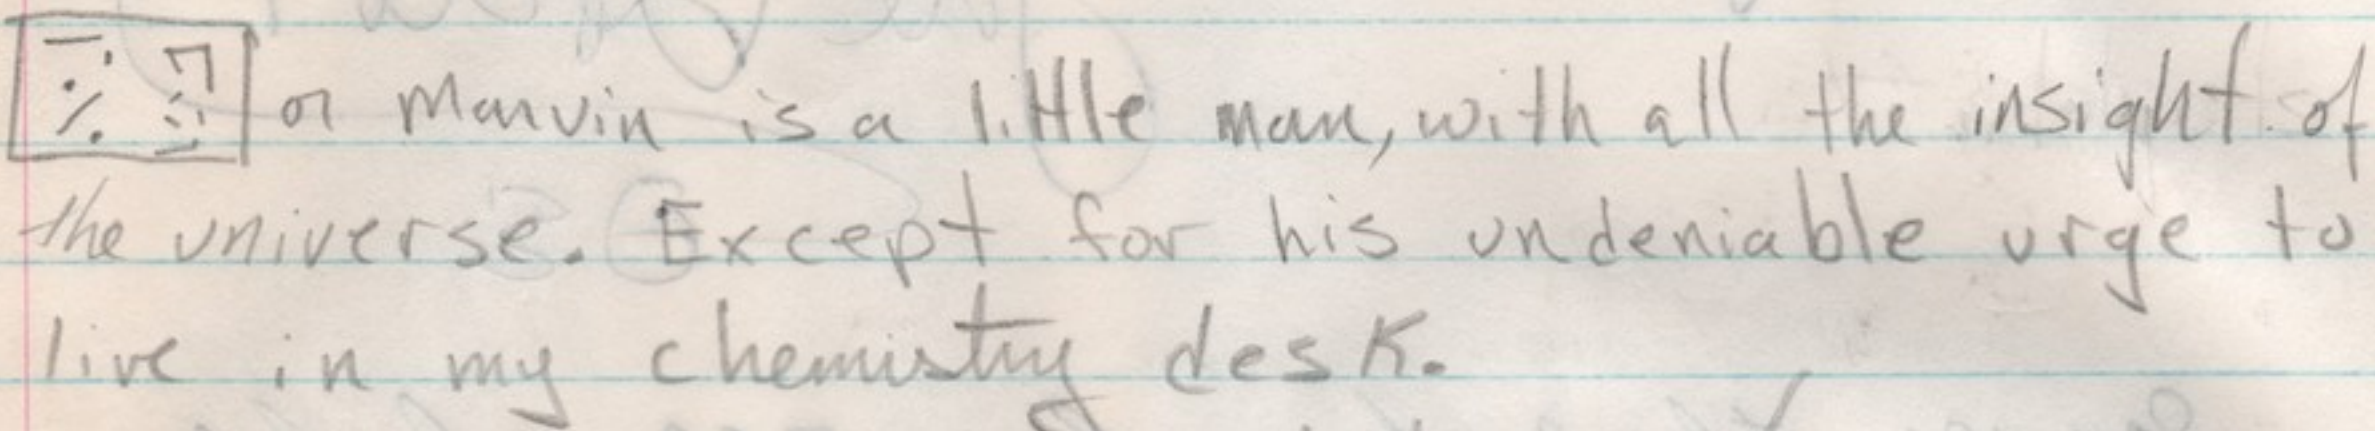 or Marvin is a little man, with all the insight of
the universe. Except for his undeniable urge to
live in my chemistry desk.